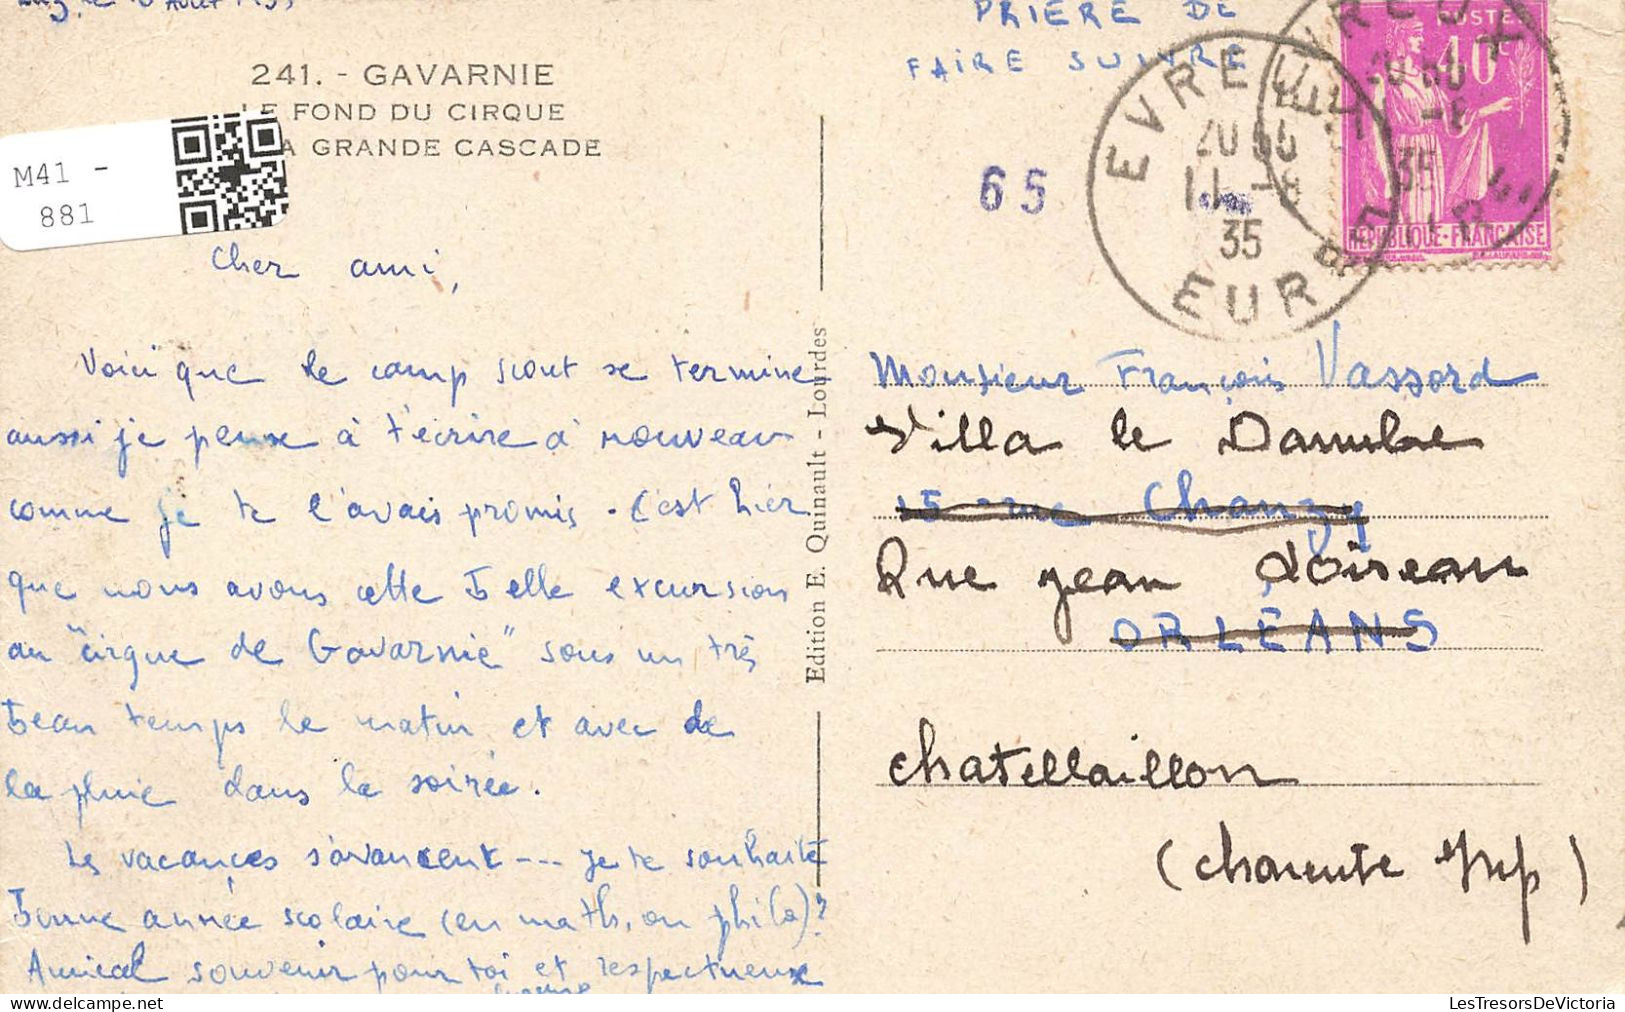 Août
241. - GAVARNIE
LE FOND DU CIRQUE
LA GRANDE CASCADE
M41 -
881
Cher ami,
Voici que le camp scout se termine
aussi je pense à t'écrire à nouveau
comme je te l'avais promis. C'est hier
que nous avons cette belle excursion
au "cirque de Gavarnie" sous un très
beau temps le matin et avec de
la pluie dans la soirée.
Les vacances s'avancent --- je te souhaite
bonne année scolaire (en maths, ou philo)?
Amical souvenir pour toi et respectueux
Edition E. Quinault - Lourdes
PRIERE DE
FAIRE SUIVRE
65
EVREUX
20 35
11 -8
35
EURE
EVREUX
35
EURE
POSTES
40c
REPUBLIQUE-FRANÇAISE
Monsieur François Vassord
Villa le Danube
15 rue Chanzy
Rue Jean Loiseau
ORLÉANS
Chatellaillon
(Charente Inf)
LesTresorsDeVictoria